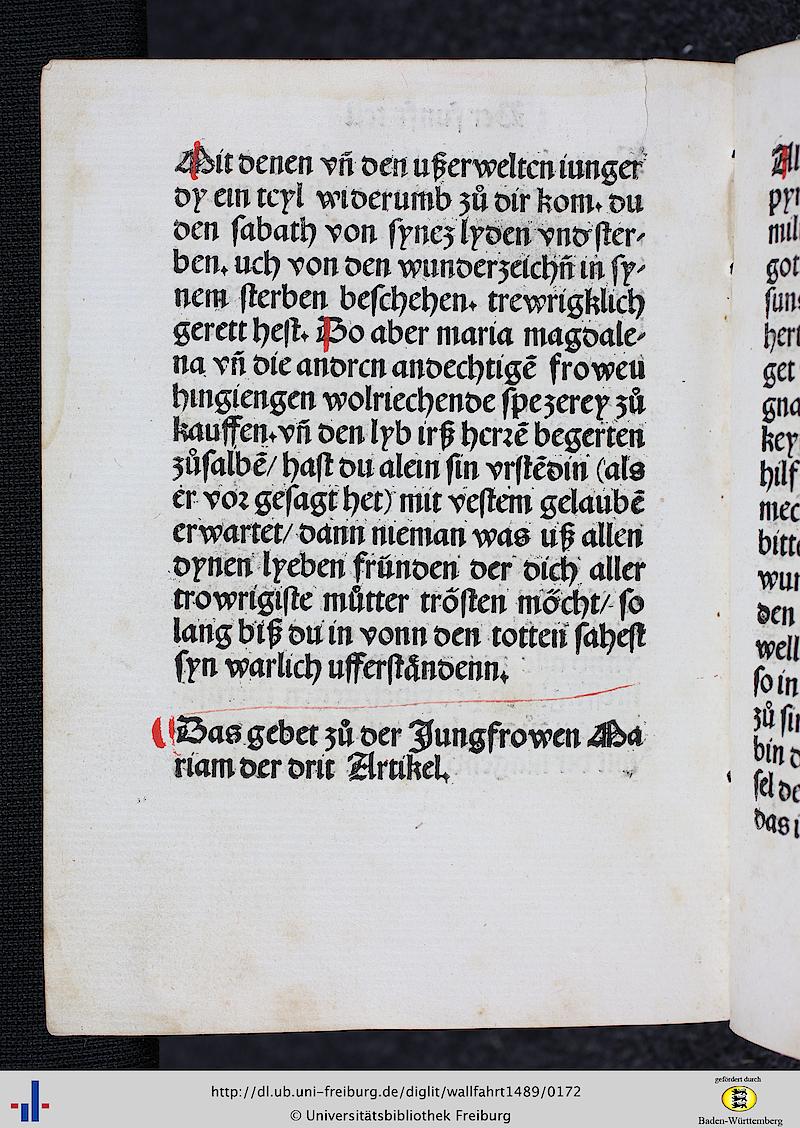 Mit denen vñ den ußerwelten iunger
dy ein teyl widerumb zů dir kom. du
den sabath von synez lyden vnd ster⸗
ben. uch von den wunderzeichñ in sy⸗
nem sterben beschehen. trewrigklich
gerett hest. Do aber maria magdale⸗
na vñ die andren andechtigē froweu
hingiengen wolriechende spezerey zů
kauffen. vñ den lyb irß herrē begerten
zůsalbē/ hast du alein sin vrstēdin (als
er vor gesagt het) mit vestem gelaubē
erwartet/ dann nieman was uß allen
dynen lyeben fründen der dich aller
trowrigiste můtter trösten möcht/ so
lang biß du in vonn den totten sahest
syn warlich ufferstāndenn.
Das gebet zů der Jungfrowen Ma
riam der drit Artikel.
Al
pyr
mil
got
suns
hert
get
gna
key
hilf
mec
bitte
wur
den
well
so in
zů sin
bin d
sel de
das i
http://dl.ub.uni-freiburg.de/diglit/wallfahrt1489/0172
© Universitätsbibliothek Freiburg
gefördert durch
Baden-Württemberg